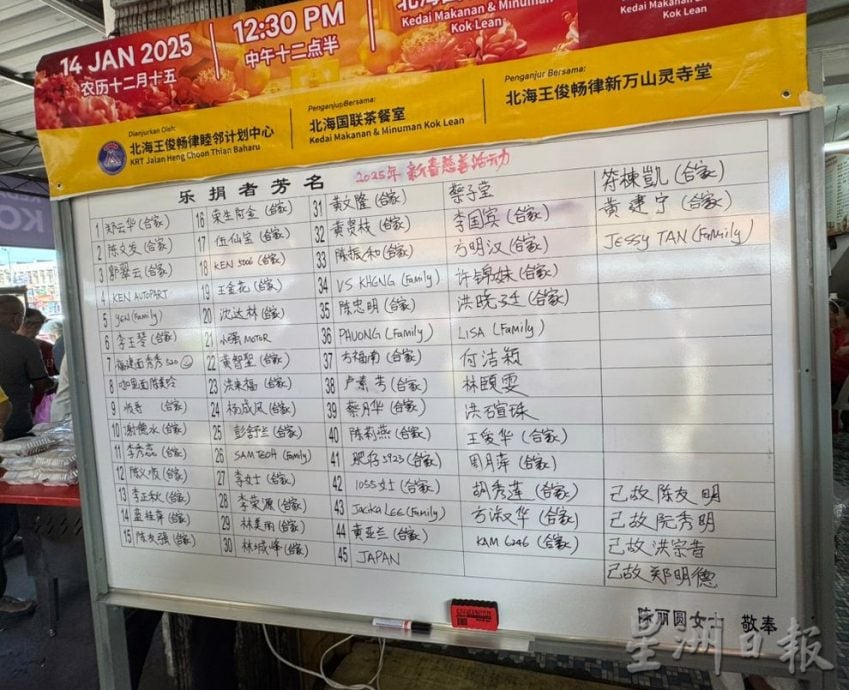 14 JAN 2025
农历十二月十五
12:30 PM
中午十二点半
Kedai Makanan & Minuman
Kok Lean
Dianjurkan Oleh:
北海王俊畅律睦邻计划中心
KRT Jalan Heng Choon Thian Baharu
Penganjur Bersama:
北海国联茶餐室
Kedai Makanan & Minuman Kok Lean
Penganjur Bersama:
北海王俊畅律新万山灵寺堂
乐捐者芳名
2025年 新春慈善活动
1 郑云华 (合家)
2 陈文发 (合家)
3 (合家)
4 KEN AUTOPART
5 YEN (Family)
6 李玉琴 (合家)
7 福建面秀秀 520
8 咖里面陈美玲
9 (合家)
10 谢德水 (合家)
11 李秀蕊 (合家)
12 陈文顺 (合家)
13 李正秋 (合家)
14 蓝桂萍 (合家)
15 陈友强 (合家)
16 (合家)
17 伍仙宝 (合家)
18 KEN 5006 (合家)
19 王金花 (合家)
20 沈达林 (合家)
21 小强 MOTOR
22 黄智圣 (合家)
23 洪来福 (合家)
24 杨成风 (合家)
25 彭舒兰 (合家)
26 SAM TEOH (Family)
27 李女士 (合家)
28 李荣源 (合家)
29 林美丽 (合家)
30 林城峰 (合家)
31 黄文隆 (合家)
32 黄贺枝 (合家)
33 陈振和 (合家)
34 VS KHENG (Family)
35 陈忠明 (合家)
36 PHUONG (Family)
37 方福南 (合家)
38 卢素芳 (合家)
39 蔡月华 (合家)
40 陈莉燕 (合家)
41 肥仔 3923 (合家)
42 1055 女士 (合家)
43 Jacika LEE (Family)
44 黄亚兰 (合家)
45 JAPAN
蔡子堂
李国宾 (合家)
方明汉 (合家)
许锦妹 (合家)
洪晓 (合家)
LISA (Family)
付洁颖
林颐雯
洪碹珠
王俊华 (合家)
周月萍 (合家)
胡秀莲 (合家)
方淑华 (合家)
KAM 6246 (合家)
符栋凯 (合家)
黄建宁 (合家)
JESSY TAN (Family)
已故 陈友明
已故 阮秀明
已故 洪宗昔
已故 郑明德
陈丽圆女士 敬奉
星洲日报